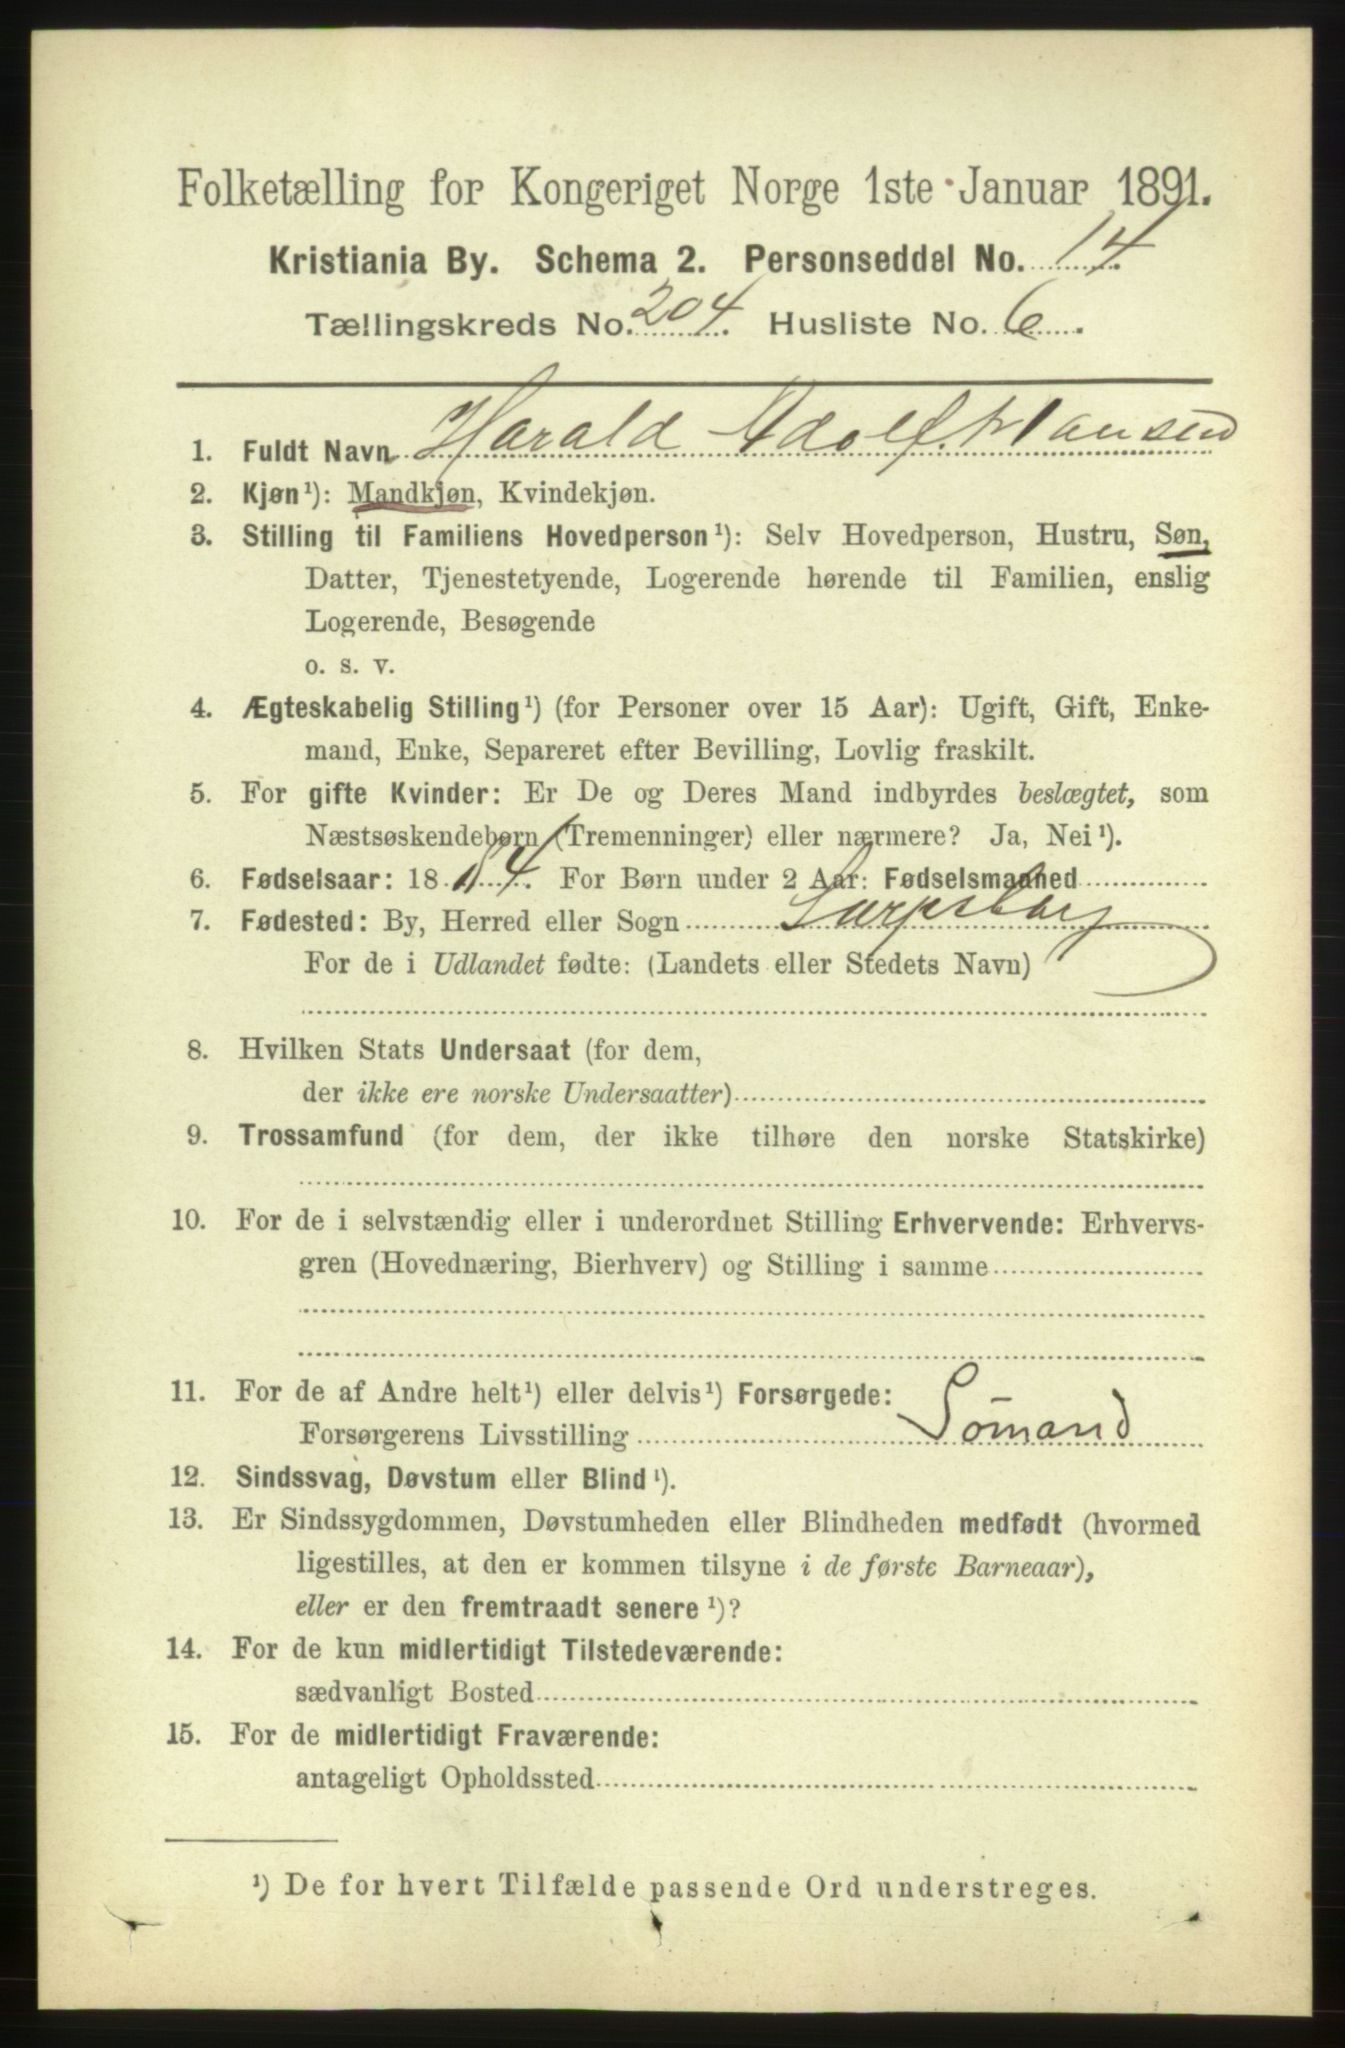 Folketælling for Kongeriget Norge 1ste Januar 1891.
Kristiania By. Schema 2. Personseddel No. 14
Tællingskreds No. 204. Husliste No. 6.
1. Fuldt Navn Harald Adolf Hansen
2. Kjøn¹): Mandkjøn, Kvindekjøn.
3. Stilling til Familiens Hovedperson¹): Selv Hovedperson, Hustru, Søn,
Datter, Tjenestetyende, Logerende hørende til Familien, enslig
Logerende, Besøgende
o. s. v.
4. Ægteskabelig Stilling¹) (for Personer over 15 Aar): Ugift, Gift, Enke-
mand, Enke, Separeret efter Bevilling, Lovlig fraskilt.
5. For gifte Kvinder: Er De og Deres Mand indbyrdes beslægtet, som
Næstsøskendebørn (Tremenninger) eller nærmere? Ja, Nei¹).
6. Fødselsaar: 1884. For Børn under 2 Aar: Fødselsmaaned
7. Fødested: By, Herred eller Sogn Sarpsborg
For de i Udlandet fødte: (Landets eller Stedets Navn)
8. Hvilken Stats Undersaat (for dem,
der ikke ere norske Undersaatter)
9. Trossamfund (for dem, der ikke tilhøre den norske Statskirke)
10. For de i selvstændig eller i underordnet Stilling Erhvervende: Erhvervs-
gren (Hovednæring, Bierhverv) og Stilling i samme
11. For de af Andre helt¹) eller delvis¹) Forsørgede:
Forsørgerens Livsstilling Sömand
12. Sindssvag, Døvstum eller Blind¹).
13. Er Sindssygdommen, Døvstumheden eller Blindheden medfødt (hvormed
ligestilles, at den er kommen tilsyne i de første Barneaar),
eller er den fremtraadt senere¹)?
14. For de kun midlertidigt Tilstedeværende:
sædvanligt Bosted
15. For de midlertidigt Fraværende:
antageligt Opholdssted
¹) De for hvert Tilfælde passende Ord understreges.